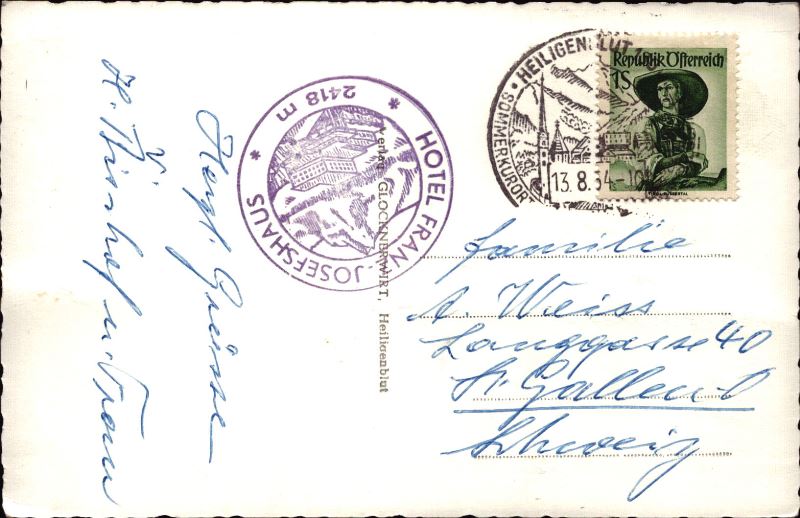 Herzl. Grüsse
HOTEL FRANZ JOSEFSHAUS
2418 m
Verlag GLOCKNERWIRT, Heiligenblut
HEILIGENBLUT
SOMMERKURORT
13.8.54
Republik Österreich
1S
Familie
A. Weiss
Langgasse 40
St. Gallen
Schweiz